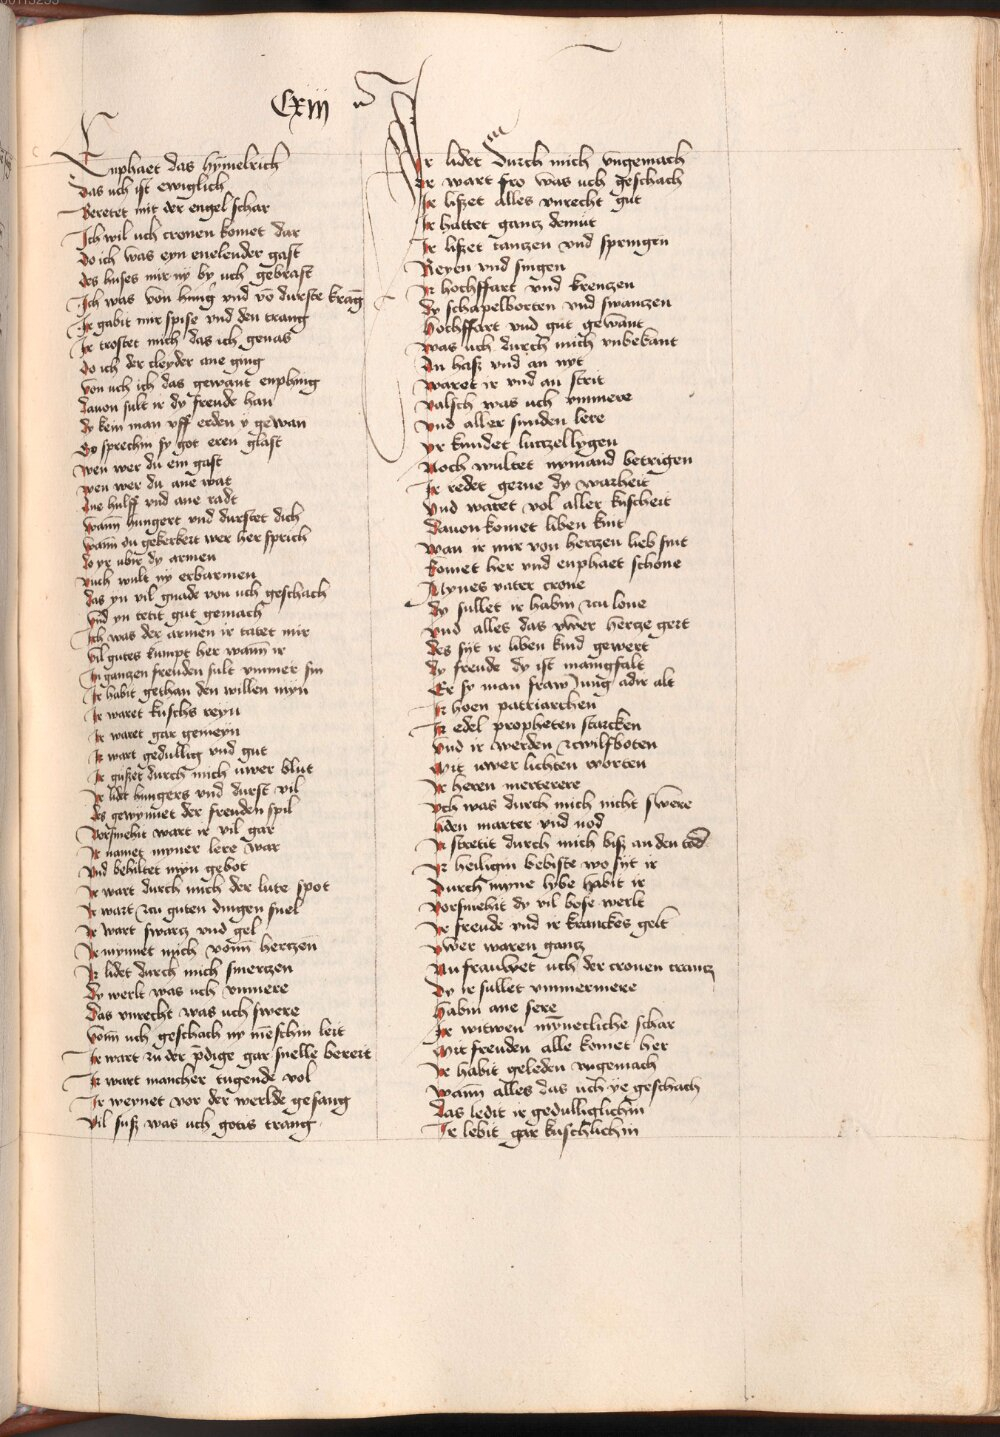 Cxiij
Enphaet das hÿmelrich
Das uch ist ewiglich
Beretet mit der engel schar
Ich wil uch cronen komet dar
Do ich was eyn enelender gast
des huses mir ny by uch gebrast
Ich was von hung vnd vō durste krāg
Ir gabit mir spise vnd den trang
Ir trostet mich das ich genas
Do ich der cleyder ane ging
Von uch ich das gewant enphing
Dauon sult ir dy freude han
dy kein man vff erden y gewan
So sprechin sy got eren glast
wen wer du ein gast
wen wer du ane wat
Ane hulff vnd ane radt
Wann hungert vnd durstet dich
Wann du gekerkert wer her sprich
do yr vbir dy armen
Vuch wult ny erbarmen
das yn vil gnade von uch geschach
Vnd yn tetit gut gemach
Ich was der armen ir tatet mir
Vil gutes kumpt her wann ir
In ganzen freuden sult ummer sin
Ir habit gethan den willen myn
Ir waret kuschs reyn
Ir waret gar gemeyn
Ir wart gedullig vnd gut
Ir gußet durch mich uwer blut
Ir lidet hungers vnd durst vil
des gewynnet der freuden spil
Vorsmehit wart ir vil gar
Ir namet myner lere war
Vnd behiltet myn gebot
Ir wart durch mich der lute spot
Ir wart zcu guten dingen snel
Ir wart swarcz vnd gel
Ir mynnet mich vonn herczen
Ir lidet durch mich smerczen
Dy werlt was uch vnmere
Das vnrecht was uch swere
Vonn uch geschach ny mēschin leit
Ir wart zu der pdige gar snelle bereit
Ir wart mancher tugende vol
Ir weynet vor der werlde gesang
Vil suß was uch gotis trang
Ir lidet durch mich vngemach
Ir wart fro was uch geschach
Ir lißet alles vnrecht gut
Ir hattet gancz demut
Ir lißet tanczen vnd springen
Reyen vnd singen
Ir hochffart vnd krenczen
dy schapelborten vnd swanczen
hochffart vnd gut gewant
was uch durch mich vnbekant
An haß vnd an nyt
waret ir vnd an strit
Valsch was uch vnmere
Vnd aller sunden lere
Yr kundet luczzel lygen
Noch wultet nymand betrigen
Ir redet gerne dy warheit
Vnd waret vol aller kuscheit
Dauon komet liben kint
Wan ir mir von herczen lieb sint
komet her vnd enphaet schone
Mynes vater crone
dy sullet ir habin zcu lone
Vnd alles das uwer hercze gert
des sijt ir liben kind gewert
dy freude dy ist manigfalt
Er sy man fraw Jung adir alt
Ir hoen patriarchen
Ir edel propheten starcken
Vnd ir werden zcwilfboten
Mit uwer lichten worten
Ir heren merterere
Vch was durch mich nicht swere
liden marter vnd nod
Ir stretit durch mich biß an den tod
Ir heiligin bebiste wo sijt ir
Durch myne lybe habit ir
Vorsmehit dy vil bose werlt
Ir freude vnd ir kranckes gelt
Vwer waren gancz
Nu frauwet uch der cronen crancz
Dy ir sullet vmmermere
habin ane sere
Ir witwen mynecliche schar
Mit freuden alle komet her
Ir habit geleden vngemach
Wann alles das uch ye geschach
Das ledit ir gedulliglichin
Ir lebit gar kuschlichin